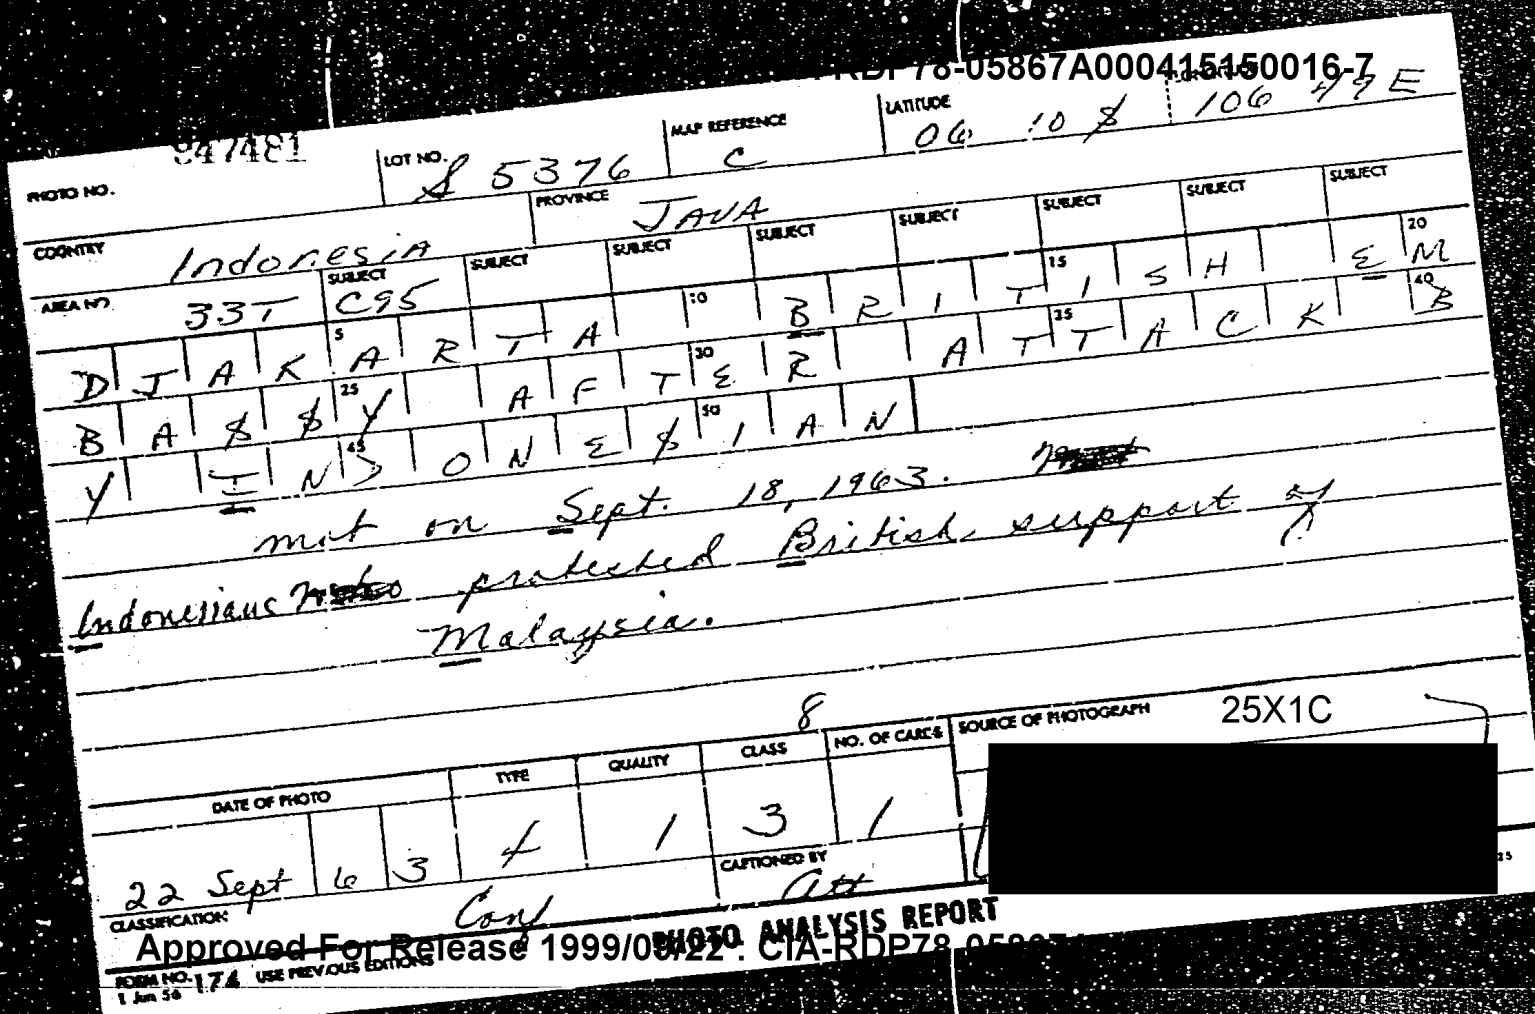 RDP78-05867A000415150016-7
PHOTO NO. 947481 LOT NO. S 5376 MAP REFERENCE C LATITUDE 06 10 S 106 49 E
COUNTRY Indonesia PROVINCE JAVA
AREA NO. 33T SUBJECT C95 SUBJECT SUBJECT SUBJECT SUBJECT SUBJECT SUBJECT SUBJECT
DJAKARTA BRITISH EM
BASSY AFTER ATTACK B
Y INDONESIAN
mob on Sept. 18, 1963.
Indonesians protested British support of
Malaysia.
8
DATE OF PHOTO TYPE QUALITY CLASS NO. OF CARDS SOURCE OF PHOTOGRAPH 25X1C
22 Sept 6 3 1 3 1
CLASSIFICATION Conf CAPTIONED BY
PHOTO ANALYSIS REPORT
Approved For Release 1999/08/22 : CIA-RDP78-05867A
FORM NO. 174 USE PREVIOUS EDITIONS
1 Jun 56